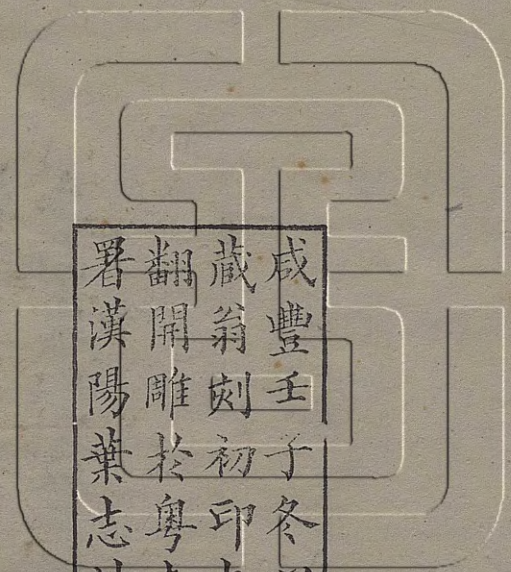 咸豐壬子冬
藏翁刻初印
翻開雕於粵
署漢陽葉志